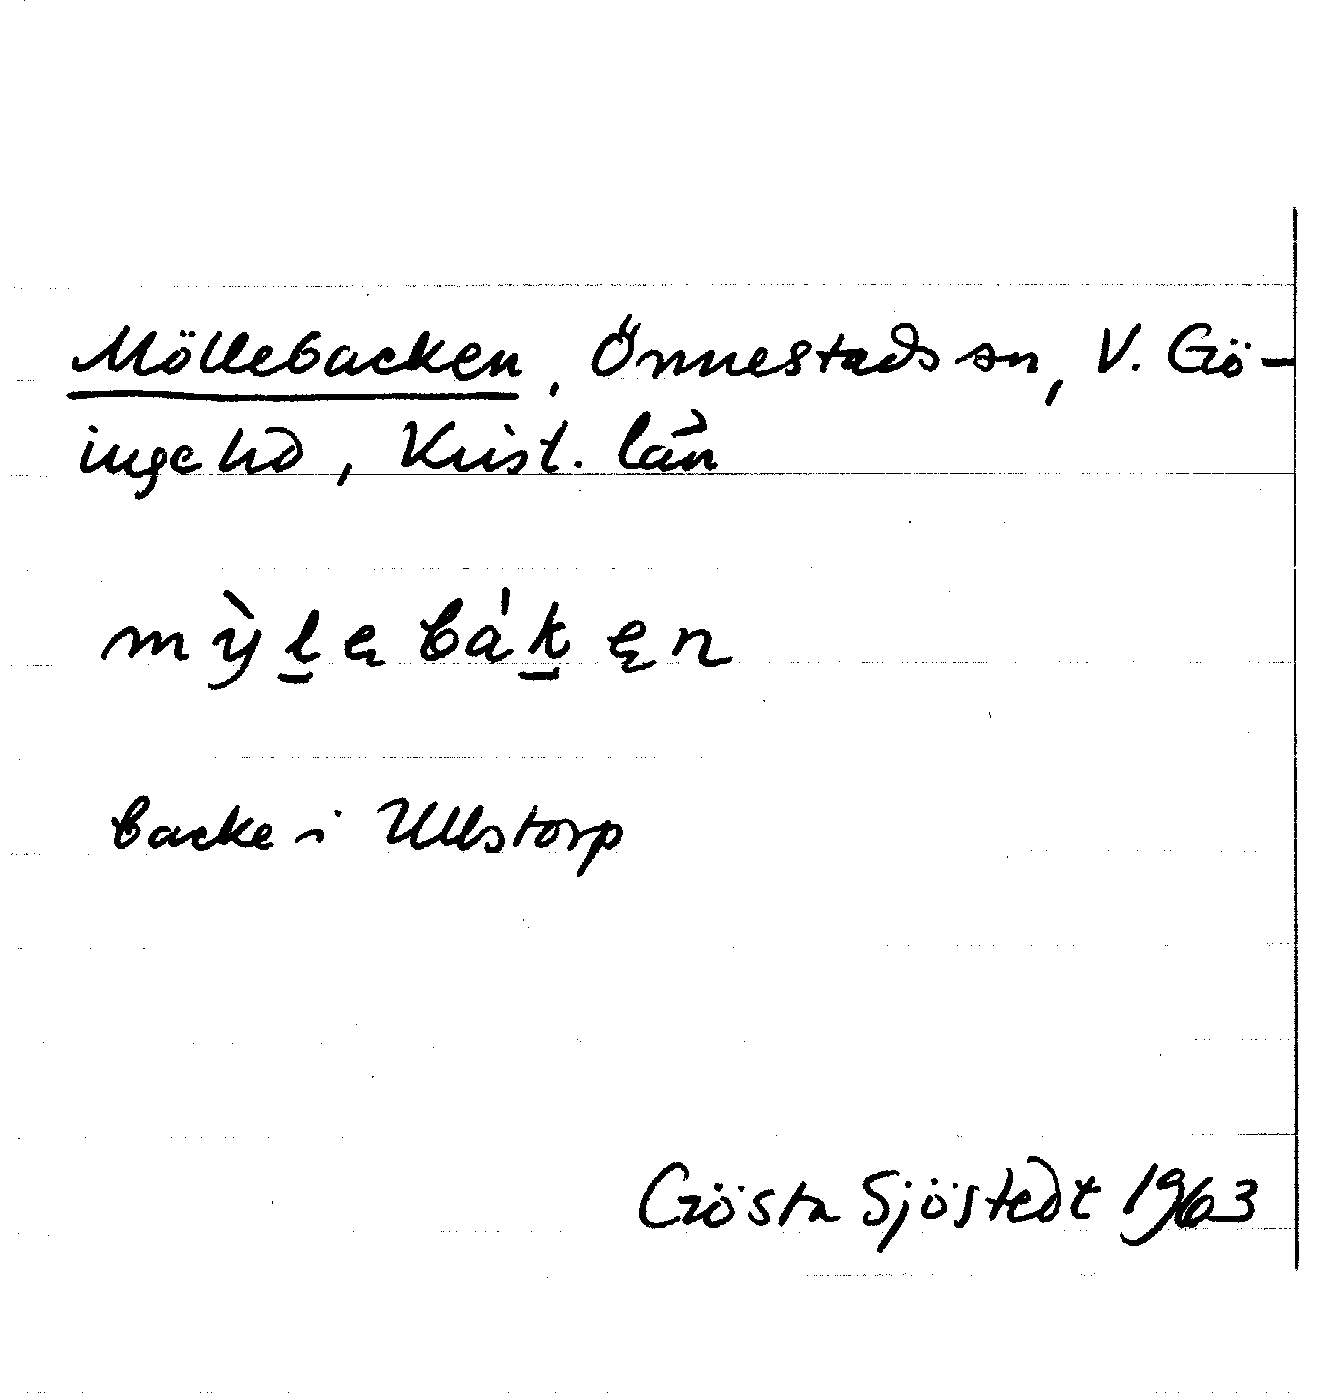 Möllebacken, Önnestads sn, V. Gö-
inge hd, Krist. län
mỳl̠ę bák̠ęn
backe i Ullstorp
Gösta Sjöstedt 1963